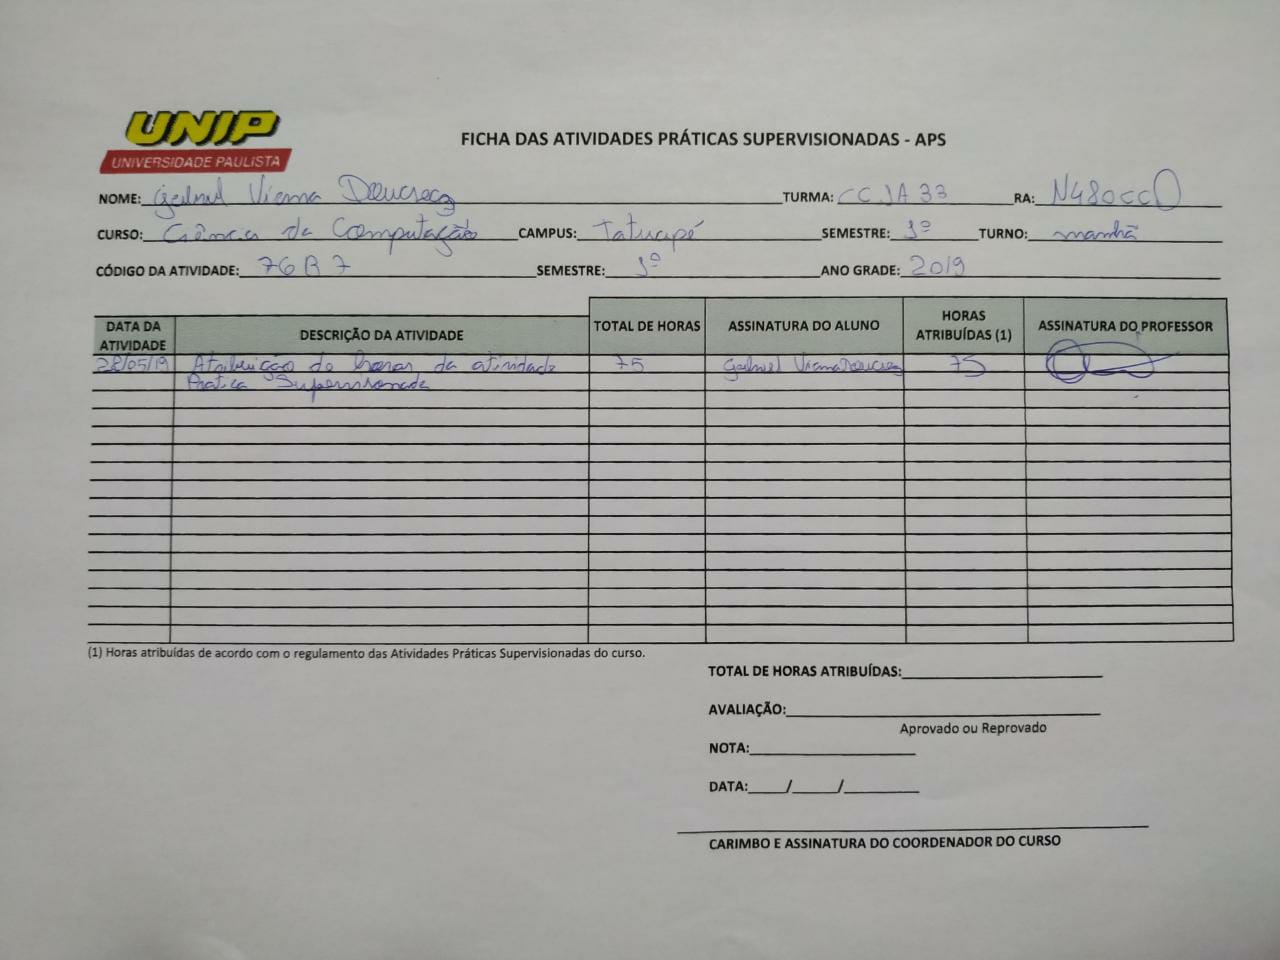 UNIP
UNIVERSIDADE PAULISTA
FICHA DAS ATIVIDADES PRÁTICAS SUPERVISIONADAS - APS
NOME: Gabriel Vianna TURMA: CCJA33 RA: N480CC0
CURSO: Ciência da Computação CAMPUS: Tatuapé SEMESTRE: 1º TURNO: manhã
CÓDIGO DA ATIVIDADE: 76B7 SEMESTRE: 1º ANO GRADE: 2019
DATA DA ATIVIDADE DESCRIÇÃO DA ATIVIDADE TOTAL DE HORAS ASSINATURA DO ALUNO HORAS ATRIBUÍDAS (1) ASSINATURA DO PROFESSOR
28/05/19 Atribuição de horas da atividade 75 Gabriel Vianna 75
Pratica Supervisionada
(1) Horas atribuídas de acordo com o regulamento das Atividades Práticas Supervisionadas do curso.
TOTAL DE HORAS ATRIBUÍDAS:
AVALIAÇÃO:
Aprovado ou Reprovado
NOTA:
DATA: / /
CARIMBO E ASSINATURA DO COORDENADOR DO CURSO